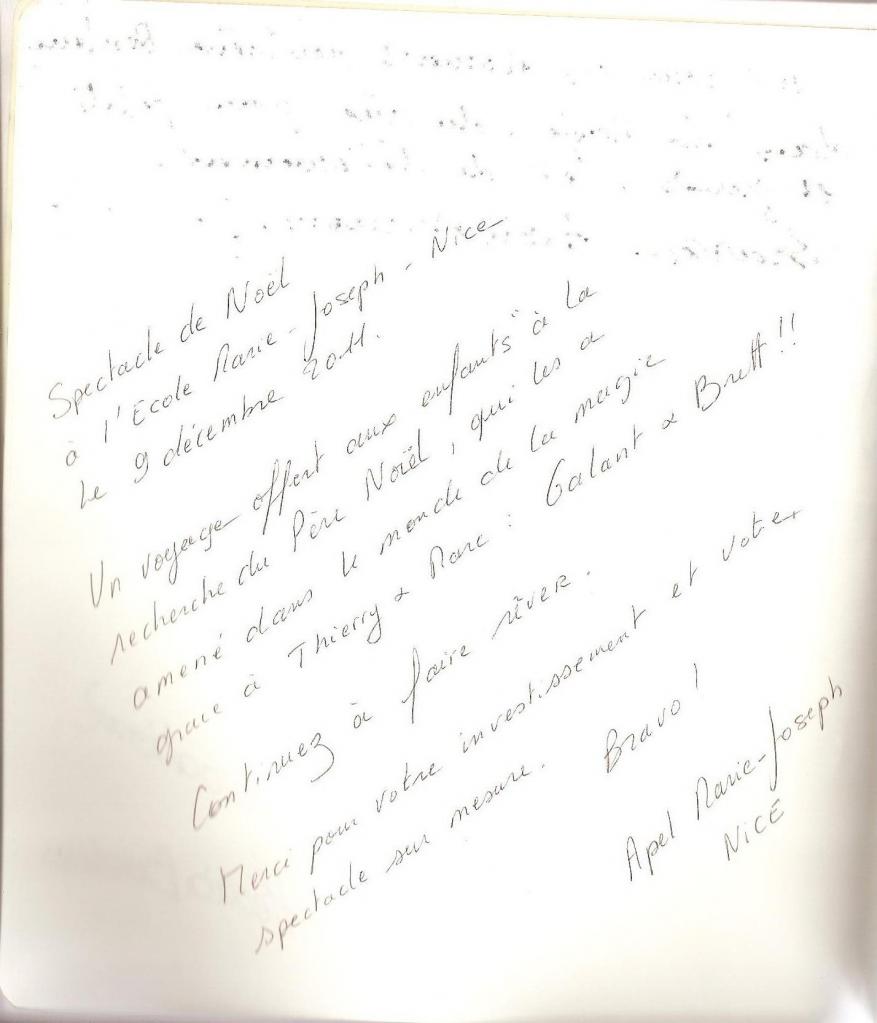 Spectacle de Noël
à l'Ecole Marie-Joseph - Nice
Le 9 décembre 2011.
Un voyage offert aux enfants "à la
recherche du Père Noël, qui les a
amené dans le monde de la magie
grace à Thierry & Marc : Galant & Brett !!
Continuez à faire rêver.
Merci pour votre investissement et votre
spectacle sur mesure. Bravo !
Apel Marie-Joseph
NICE